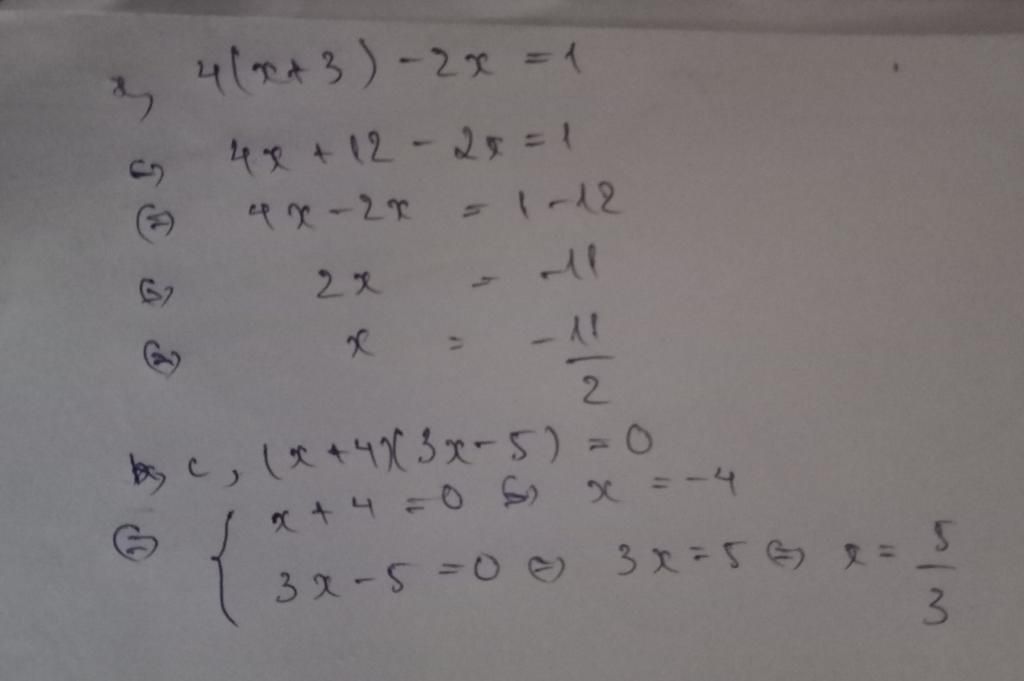 a, 4(x+3) - 2x = 1
⇔ 4x + 12 - 2x = 1
⇔ 4x - 2x = 1 - 12
⇔ 2x = -11
⇔ x = -11/2
c, (x+4)(3x-5) = 0
⇔ { x + 4 = 0 ⇔ x = -4
3x - 5 = 0 ⇔ 3x = 5 ⇔ x = 5/3